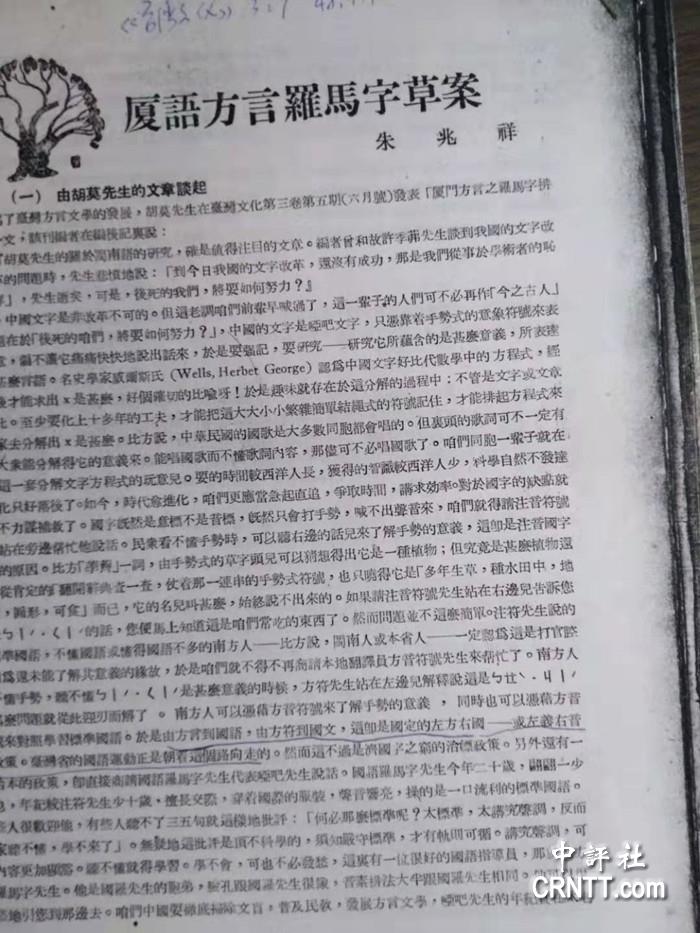 厦語方言羅馬字草案
朱兆祥
(一) 由胡莫先生的文章談起
了臺灣方言文學的發展，胡莫先生在臺灣文化第三卷第五期(六月號)發表「厦門方言之羅馬字拼
一文，該刊編者在編後記裏說：
胡莫先生的關於閩南語的研究，確是值得注目的文章。編者曾和故許季茀先生談到我國的文字改
的問題時，先生悲憤地說：「到今日我國的文字改革，還沒有成功，那是我們從事於學術者的恥
」，先生逝矣，可是，後死的我們，將要如何努力？』
中國文字是非改革不可的。但這老調咱們前輩早喊過了，這一輩子的人們可不必再作「今之古人」
在於「後死的咱們，將要如何努力？」，中國的文字是啞吧文字，只憑靠着手勢式的意象符號來表
，偏不讓它痛痛快快地說出話來，於是要強記，要研究——研究它所蘊含的是甚麼意義，所表達
甚麼言語。名史學家威爾斯氏 (Wells, Herbet George) 認爲中國文字好比代數學中的方程式，經
後才能求出x是甚麼，好個確切的比喻呀！於是趣味就存在於這分解的過程中：不管是文字或文章
比。至少要化上十多年的工夫，才能把這大大小小繁雜簡單結繩式的符號記住，才能排起方程式來
家去分解出x是甚麼。比方說，中華民國的國歌是大多數同胞都會唱的。但裏頭的歌詞可不一定有
大衆能分解得它的意義來。能唱國歌而不懂歌詞內容，那儘可不必唱國歌了。咱們同胞一輩子就在
這一套分解文字方程式的玩意兒。要的時間較西洋人長，獲得的智識較西洋人少，科學自然不發達
化只好落後了。如今，時代愈進化，咱們更應當急起直追，爭取時間，講求效率。對於國字的缺點就
不力謀補救了。國字旣然是意標不是音標，旣然只會打手勢，喊不出聲音來，咱們就得請注音符號
站在旁邊幫忙他說話。民衆看不懂手勢時，可以聽右邊的話兒來了解手勢的意義，這卽是注音國字
的原因。比方「荸薺」一詞，由手勢式的草字頭兒可以猜想得出它是一種植物；但究竟是甚麼植物還
從肯定的。翻開辭典查一查，仗着那一連串的手勢式符號，也只曉得它是「多年生草，種水田中，地
，圓形，可食」而已，它的名兒叫甚麼，始終說不出來的。如果請注音符號先生站在右邊兒告訴您
的話，您便馬上知道這是咱們常吃的東西了。然而問題並不這麼簡單。注符先生說的
準國語，不懂國語或懂得國語不多的南方人——比方說，閩南人或本省人——一定認爲這是打官腔
爲還未能了解其意義的緣故，於是咱們就不得不再商請本地翻譯員方音符號先生來幫忙了。南方人
懂手勢，聽不懂ㄅㄧˊ·ㄑㄧˊ是甚麼意義的時候，方符先生站在左邊兒解釋說這是
麼問題就從此迎刃而解了。南方人可以憑藉方音符號來了解手勢的意義，同時也可以憑藉方音
來對照學習標準國語。於是由方言到國語，由方符到國文，這卽是國定的左方右國——或左義右音
政策。臺灣省的國語運動正是朝着這個路向走的。然而這不過是濟國字之窮的治標政策。另外還有一
本的政策，卽直接商請國語羅馬字先生代表啞吧先生說話。國語羅馬字先生今年二十歲，翩翩一少
，年紀較注符先生少十歲，擅長交際，穿着國際的服裝，聲音響亮，操的是一口流利的標準國語。
些人很歡迎他，有些人聽不了三五句就這樣地批評：「何必那麼標準呢？太標準，太講究聲調，反而
家聽不懂，學不來了」。無疑地這批評是頂不科學的，須知嚴守標準，才有軌則可循。講究聲調，可
內容更加顯豁。聽不懂就得學習。學不會，可也不必發愁，這裏有一位很好的國語指導員，那
羅馬字先生。他是國羅先生的胞弟，臉孔跟國羅先生很像，音素拼法大半跟國羅先生相同。
地引您到那邊去。咱們中國要徹底掃除文盲，普及民敎，發展方言文學，啞吧先生的年紀
中評社
CRNTT.com